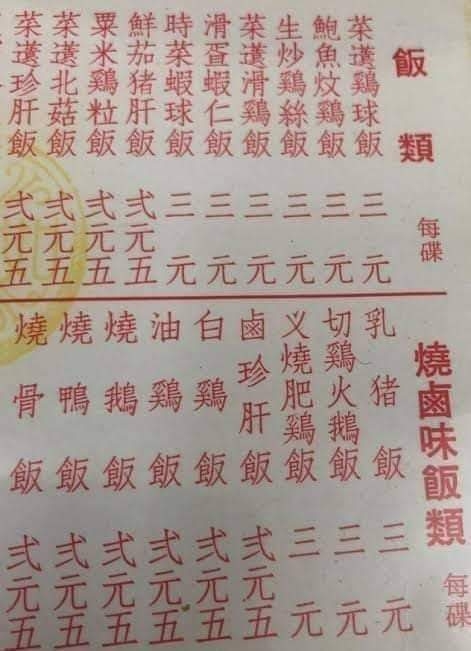 飯類 每碟
菜薳鷄球飯 三元
鮑魚炆鷄飯 三元
生炒鷄絲飯 三元
菜薳滑鷄飯 三元
滑疍蝦仁飯 三元
時菜蝦球飯 三元
鮮茄猪肝飯 弍元五
粟米鷄粒飯 弍元五
菜薳北菇飯 弍元五
菜薳珍肝飯 弍元五
燒鹵味飯類 每碟
乳猪飯 三元
切鷄火鵝飯 三元
义燒肥鷄飯 三元
鹵珍肝飯 弍元五
白鷄飯 弍元五
油鷄飯 弍元五
燒鵝飯 弍元五
燒鴨飯 弍元五
燒骨飯 弍元五